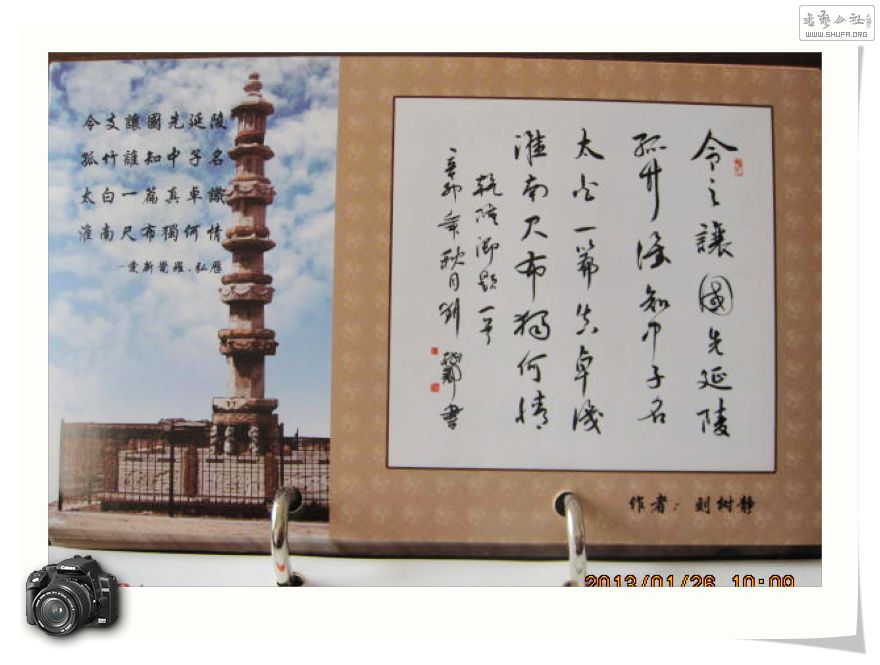 書藝公社
WWW.SHUFA.ORG
令支讓國先延陵
孤竹誰知中子名
太白一篇真卓識
淮南尺布獨何情
—愛新覺羅.弘歷
令支讓國先延陵
孤竹谁知中子名
太白一篇真卓識
淮南尺布獨何情
乾隆御题一首
辛卯年秋月刘树静書
作者：刘树静
2013/01/26 10:09
Canon
EOS